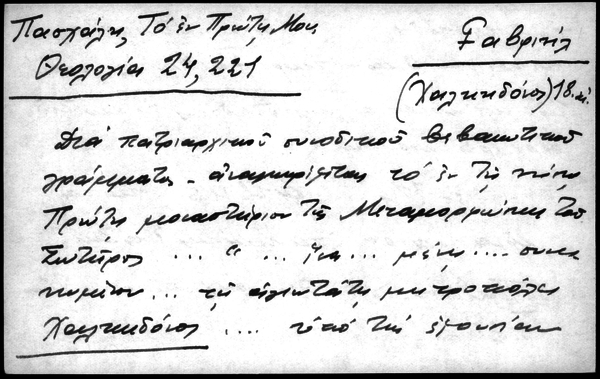 Πασχάλη, Τό ἐν Πρώτη Μον.
Θεολογία 24, 221
Γαβριήλ
(Χαλκηδόνος) 18. αἰ.
Διά πατριαρχικοῦ συνοδικοῦ βεβαιωτικοῦ
γράμματος ἀναγνωρίζεται τό ἐν τῇ νήσῳ
Πρώτῃ μοναστήριον τῆς Μεταμορφώσεως τοῦ
Σωτῆρος ... " ... ἵνα ... μένῃ ....
... τῇ ἁγιωτάτῃ μητροπόλει
Χαλκηδόνος .... ὑπό τήν ἐξουσίαν